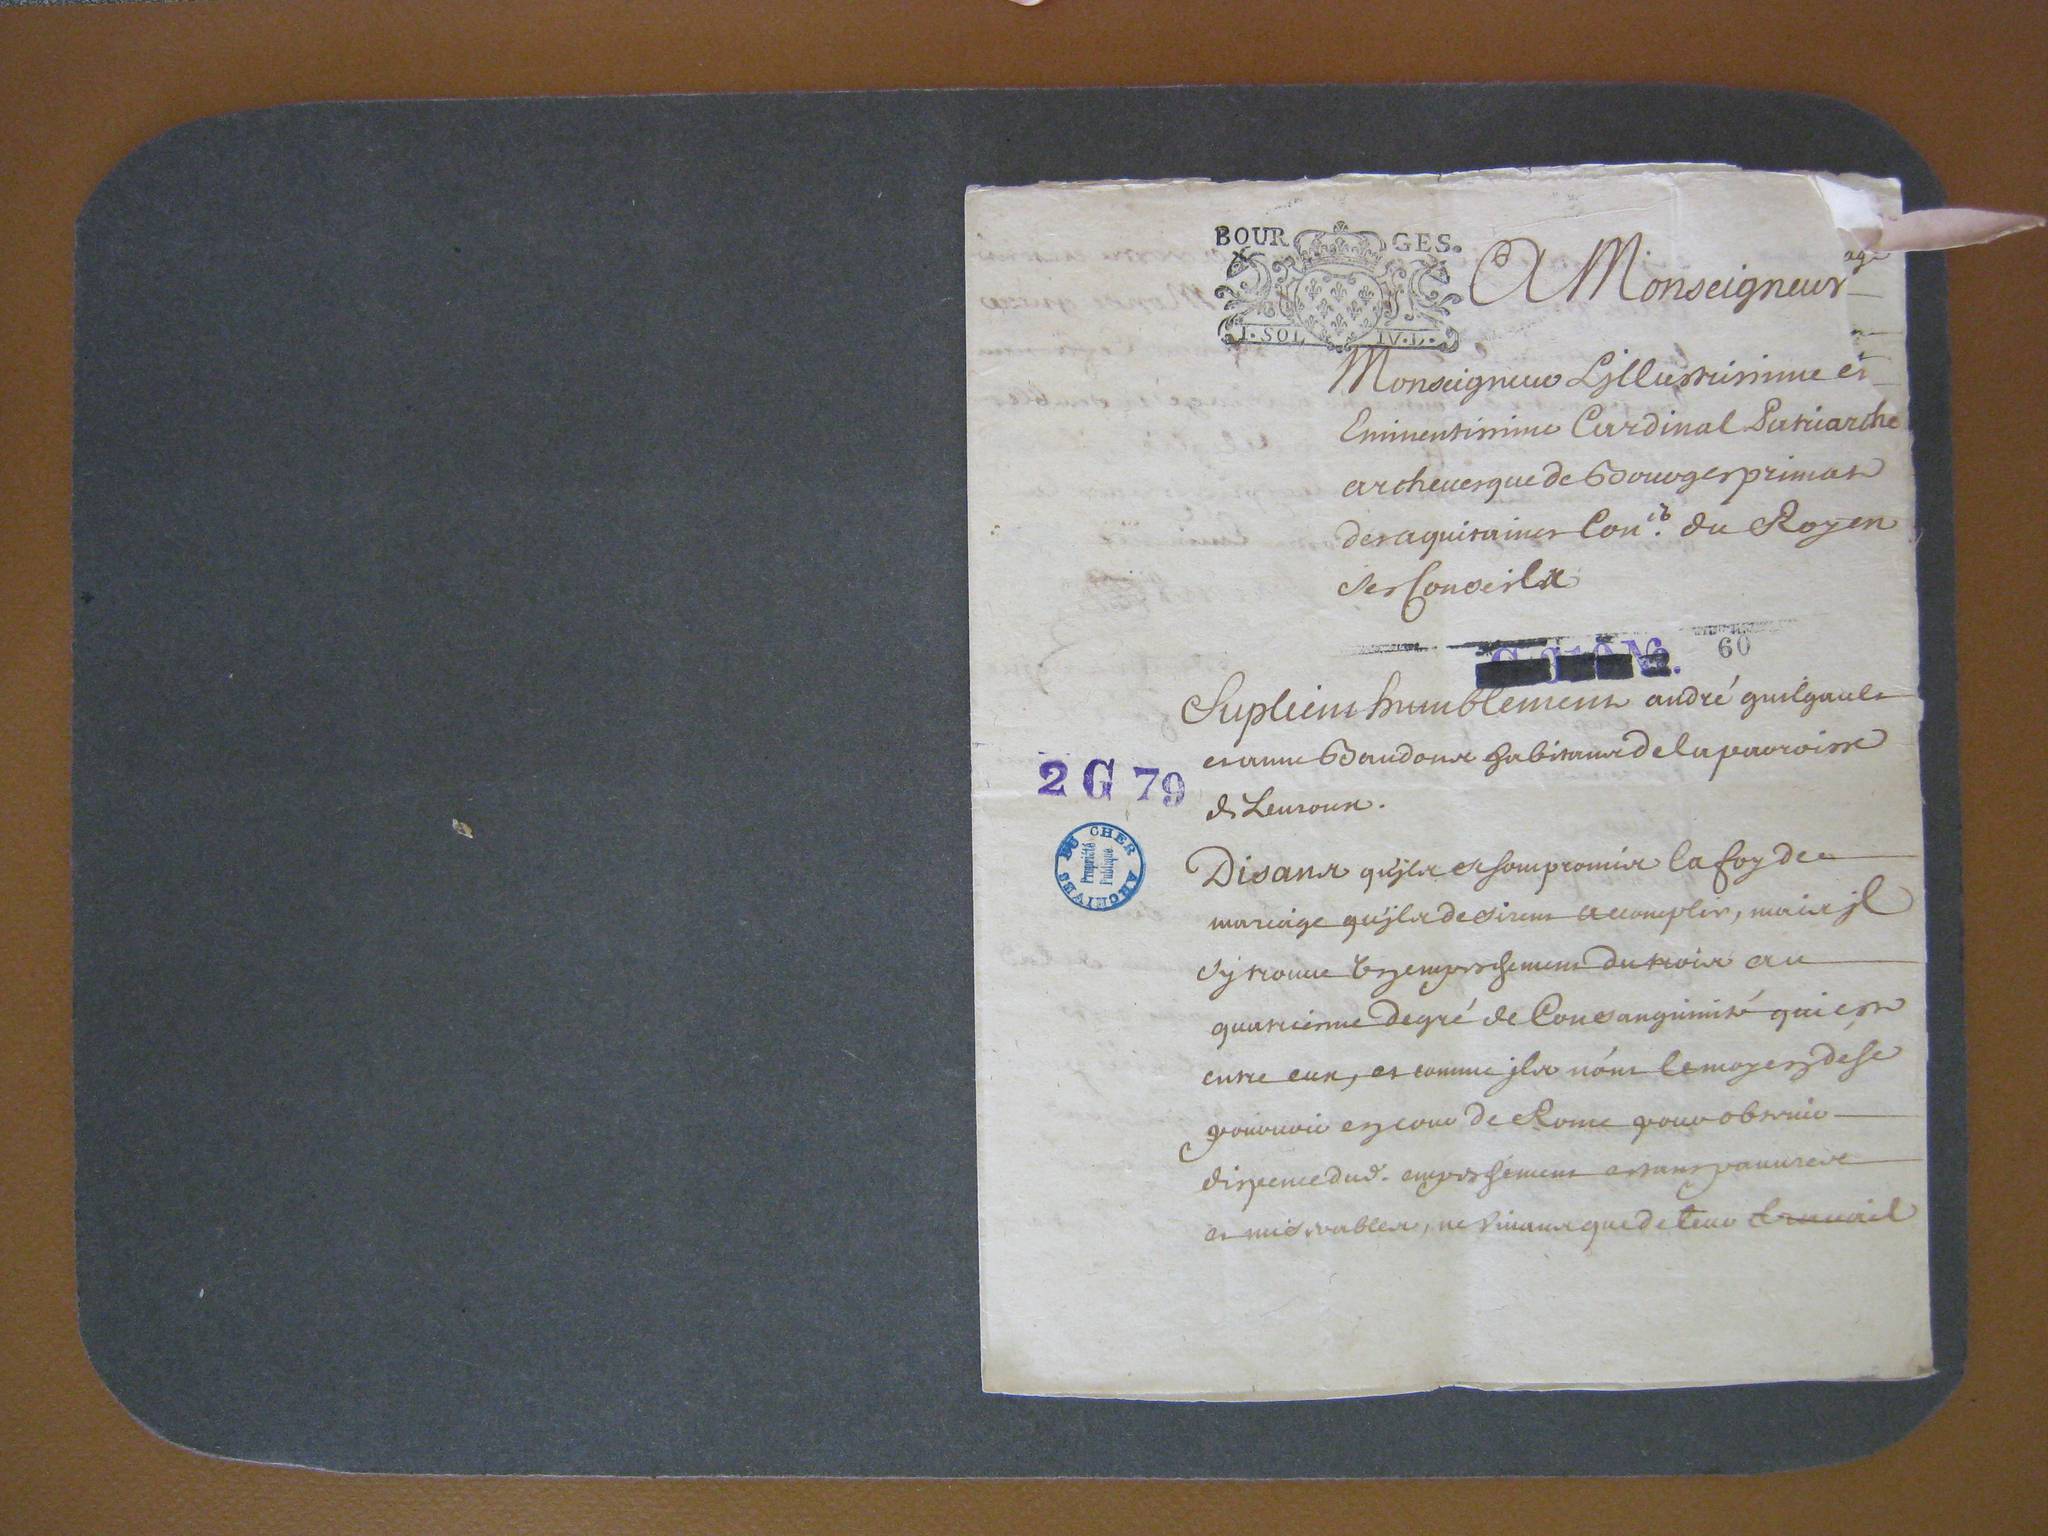 BOURGES.
I. SOL IV. D.
A Monseigneur
Monseigneur L'jllustrissime et
Eminentissime Cardinal Patriarche
archeuesque de Bourges primat
des aquitaines Con.er du Roy en
ses Conseils
60
Suplient humblement andré guilgault
et anne Baudons habitans de la parroisse
de Leuroux.
2 G 79
ARCHIVES DU CHER
Propriété
Publique
Disans qu'jls se sont promis la foy de
mariage qu'jls desirent accomplir, mais jl
s'y trouue un empeschement du trois au
quatriesme degré de Consanguinité qui est
entre eux, et comme jls n'ont le moyen de se
pouruoir en cour de Rome pour obtenir
dispence dud. empeschement estans pauures
et miserables, ne viuans que de leur trauail